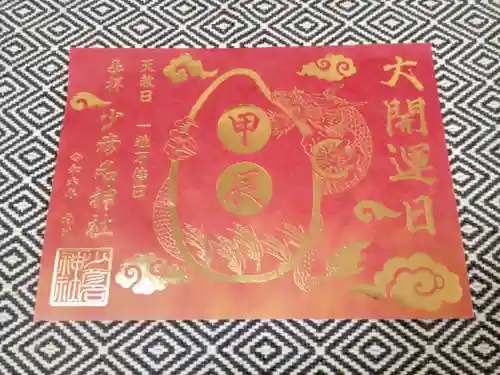 大開運日
甲
辰
天赦日 一粒万倍日
奉拝 少彦名神社
令和六年